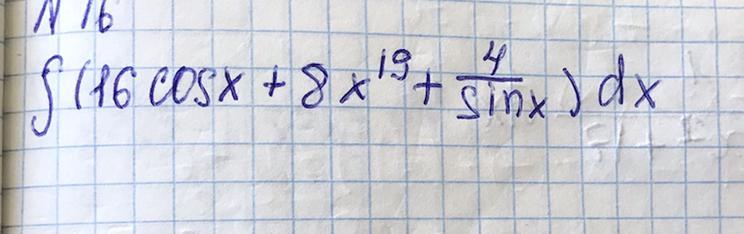 N 16
∫(16 cosx + 8x¹⁹ + 4/sinx) dx